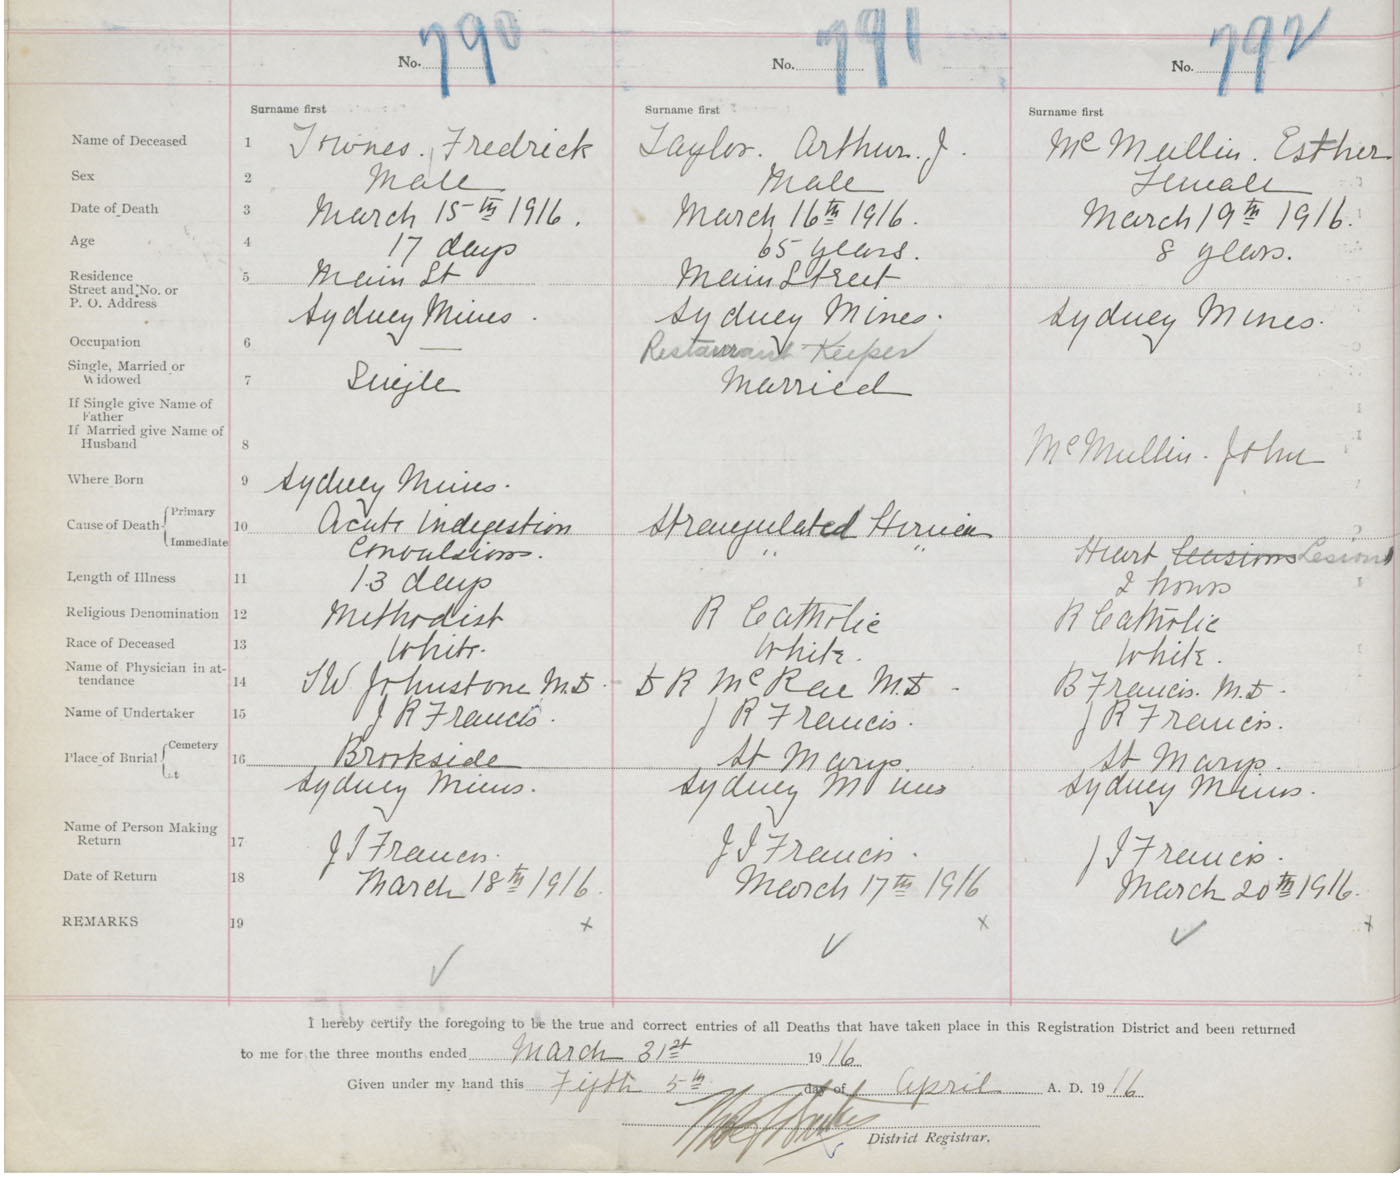 No. 790
No. 791
No. 792
Surname first
Surname first
Surname first
Name of Deceased 1 Townes. Fredrick Taylor. Arthur. J. McMullin. Esther
Sex 2 Male Male Female
Date of Death 3 March 15th 1916. March 16th 1916. March 19th 1916.
Age 4 17 days 65 years. 8 years.
Residence 5 Main St Main Street
Street and No. or
P. O. Address Sydney Mines. Sydney Mines. Sydney Mines.
Occupation 6 — Restaurant Keeper
Single, Married or
Widowed 7 Single Married
If Single give Name of
Father
If Married give Name of
Husband 8 McMullin. John
Where Born 9 Sydney Mines.
Cause of Death Primary 10 Acute Indigestion Strangulated Hernia
Immediate Convulsions. " " Heart Leasions Lesions
Length of Illness 11 13 days 2 hours
Religious Denomination 12 Methodist R Catholic R Catholic
Race of Deceased 13 White. White. White.
Name of Physician in at-
tendance 14 S W Johnstone M.D. D R McRae M.D. B Francis. M.D.
Name of Undertaker 15 J R Francis. J R Francis. J R Francis.
Place of Burial Cemetery 16 Brookside St Marys. St Marys.
At Sydney Mines. Sydney Mines Sydney Mines.
Name of Person Making
Return 17 J I Francis. J I Francis. J I Francis.
Date of Return 18 March 18th 1916. March 17th 1916 March 20th 1916.
REMARKS 19 x x x
I hereby certify the foregoing to be the true and correct entries of all Deaths that have taken place in this Registration District and been returned
to me for the three months ended March 31st 1916
Given under my hand this Fifth 5th day of April A. D. 1916
District Registrar.